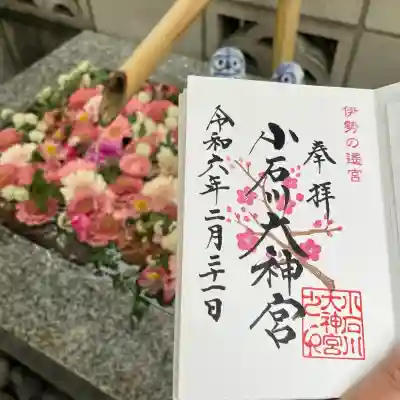 伊勢の遥宮
奉拝
小石川大神宮
令和六年二月二十一日
小石川
大神宮